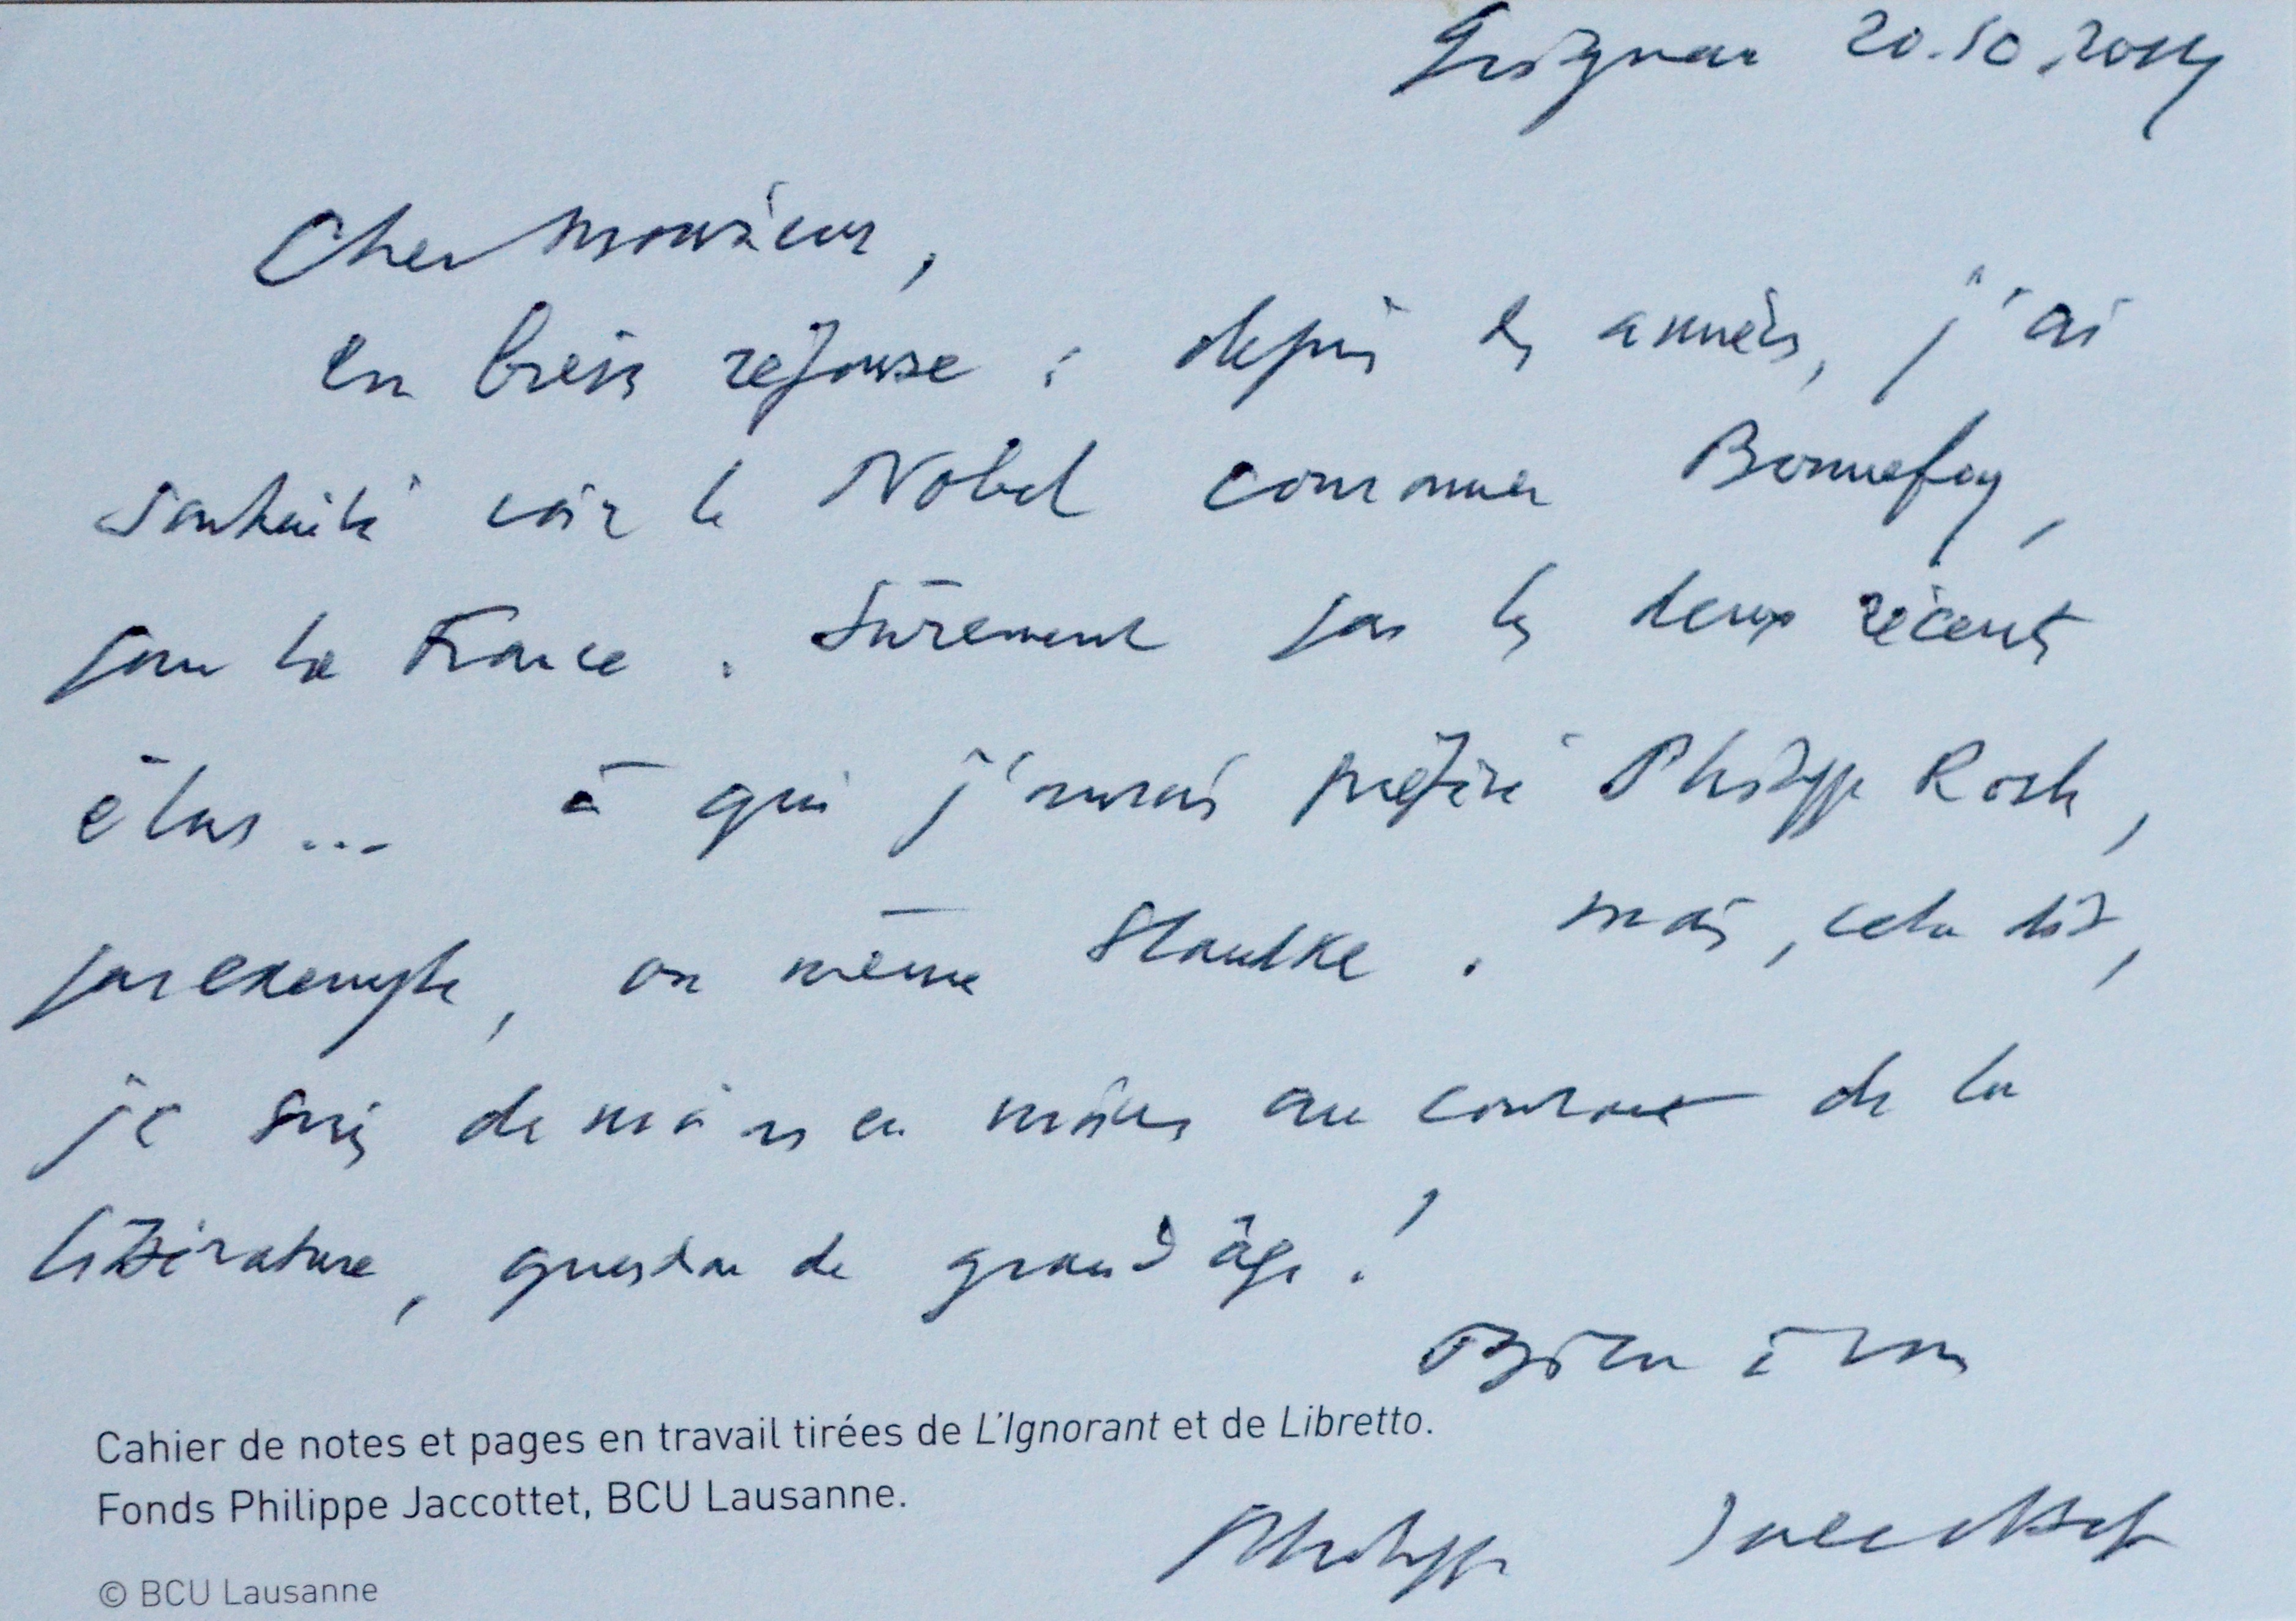 Grignan 20.10.2014
Cher Monsieur,
en brève réponse : depuis des années, j'ai
souhaité voir le Nobel couronner Bonnefoy,
pour la France. Sûrement pas les deux récents
élus... à qui j'aurais préféré Philippe Roth,
par exemple, ou même Handke. Mais, cela dit,
je suis de moins en moins au courant de la
littérature, question de grand âge!
Bien à vous
Philippe Jaccottet
Cahier de notes et pages en travail tirées de L'Ignorant et de Libretto.
Fonds Philippe Jaccottet, BCU Lausanne.
© BCU Lausanne